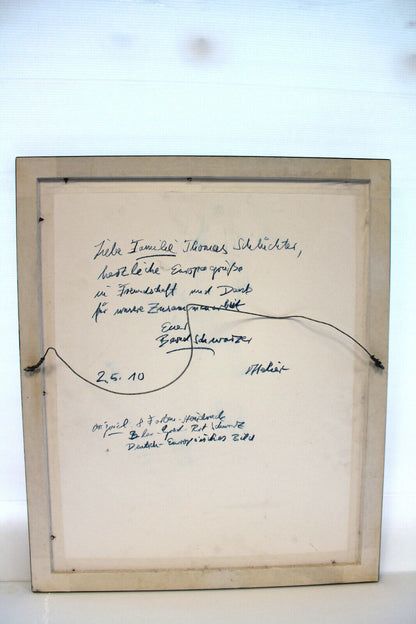 Liebe Familie Thomas Schlüchter,
herzliche Europagrüße
in Freundschaft und Dank
für unsere Zusammenarbeit
Euer
Bernd Schwarzer
2.5.10 Atelier
Original 8 Farben-Holzdruck
Blau-Gold-Rot-Schwarz
Deutsch-Europäisches Bild